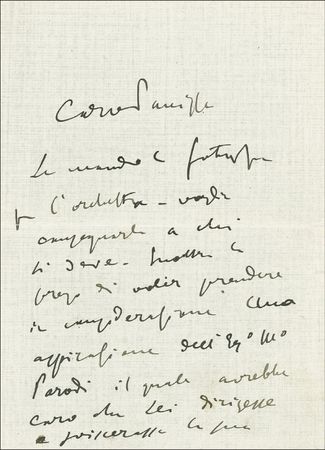 Caro Panizza
Le mando le fotografie
per l'orchestra - voglia
consegnarle a chi
si deve - Inoltre La
prego di voler prendere
in considerazione una
aspirazione dell'Eg° M°
Parodi il quale avrebbe
caro che Lei dirigesse
e la sua